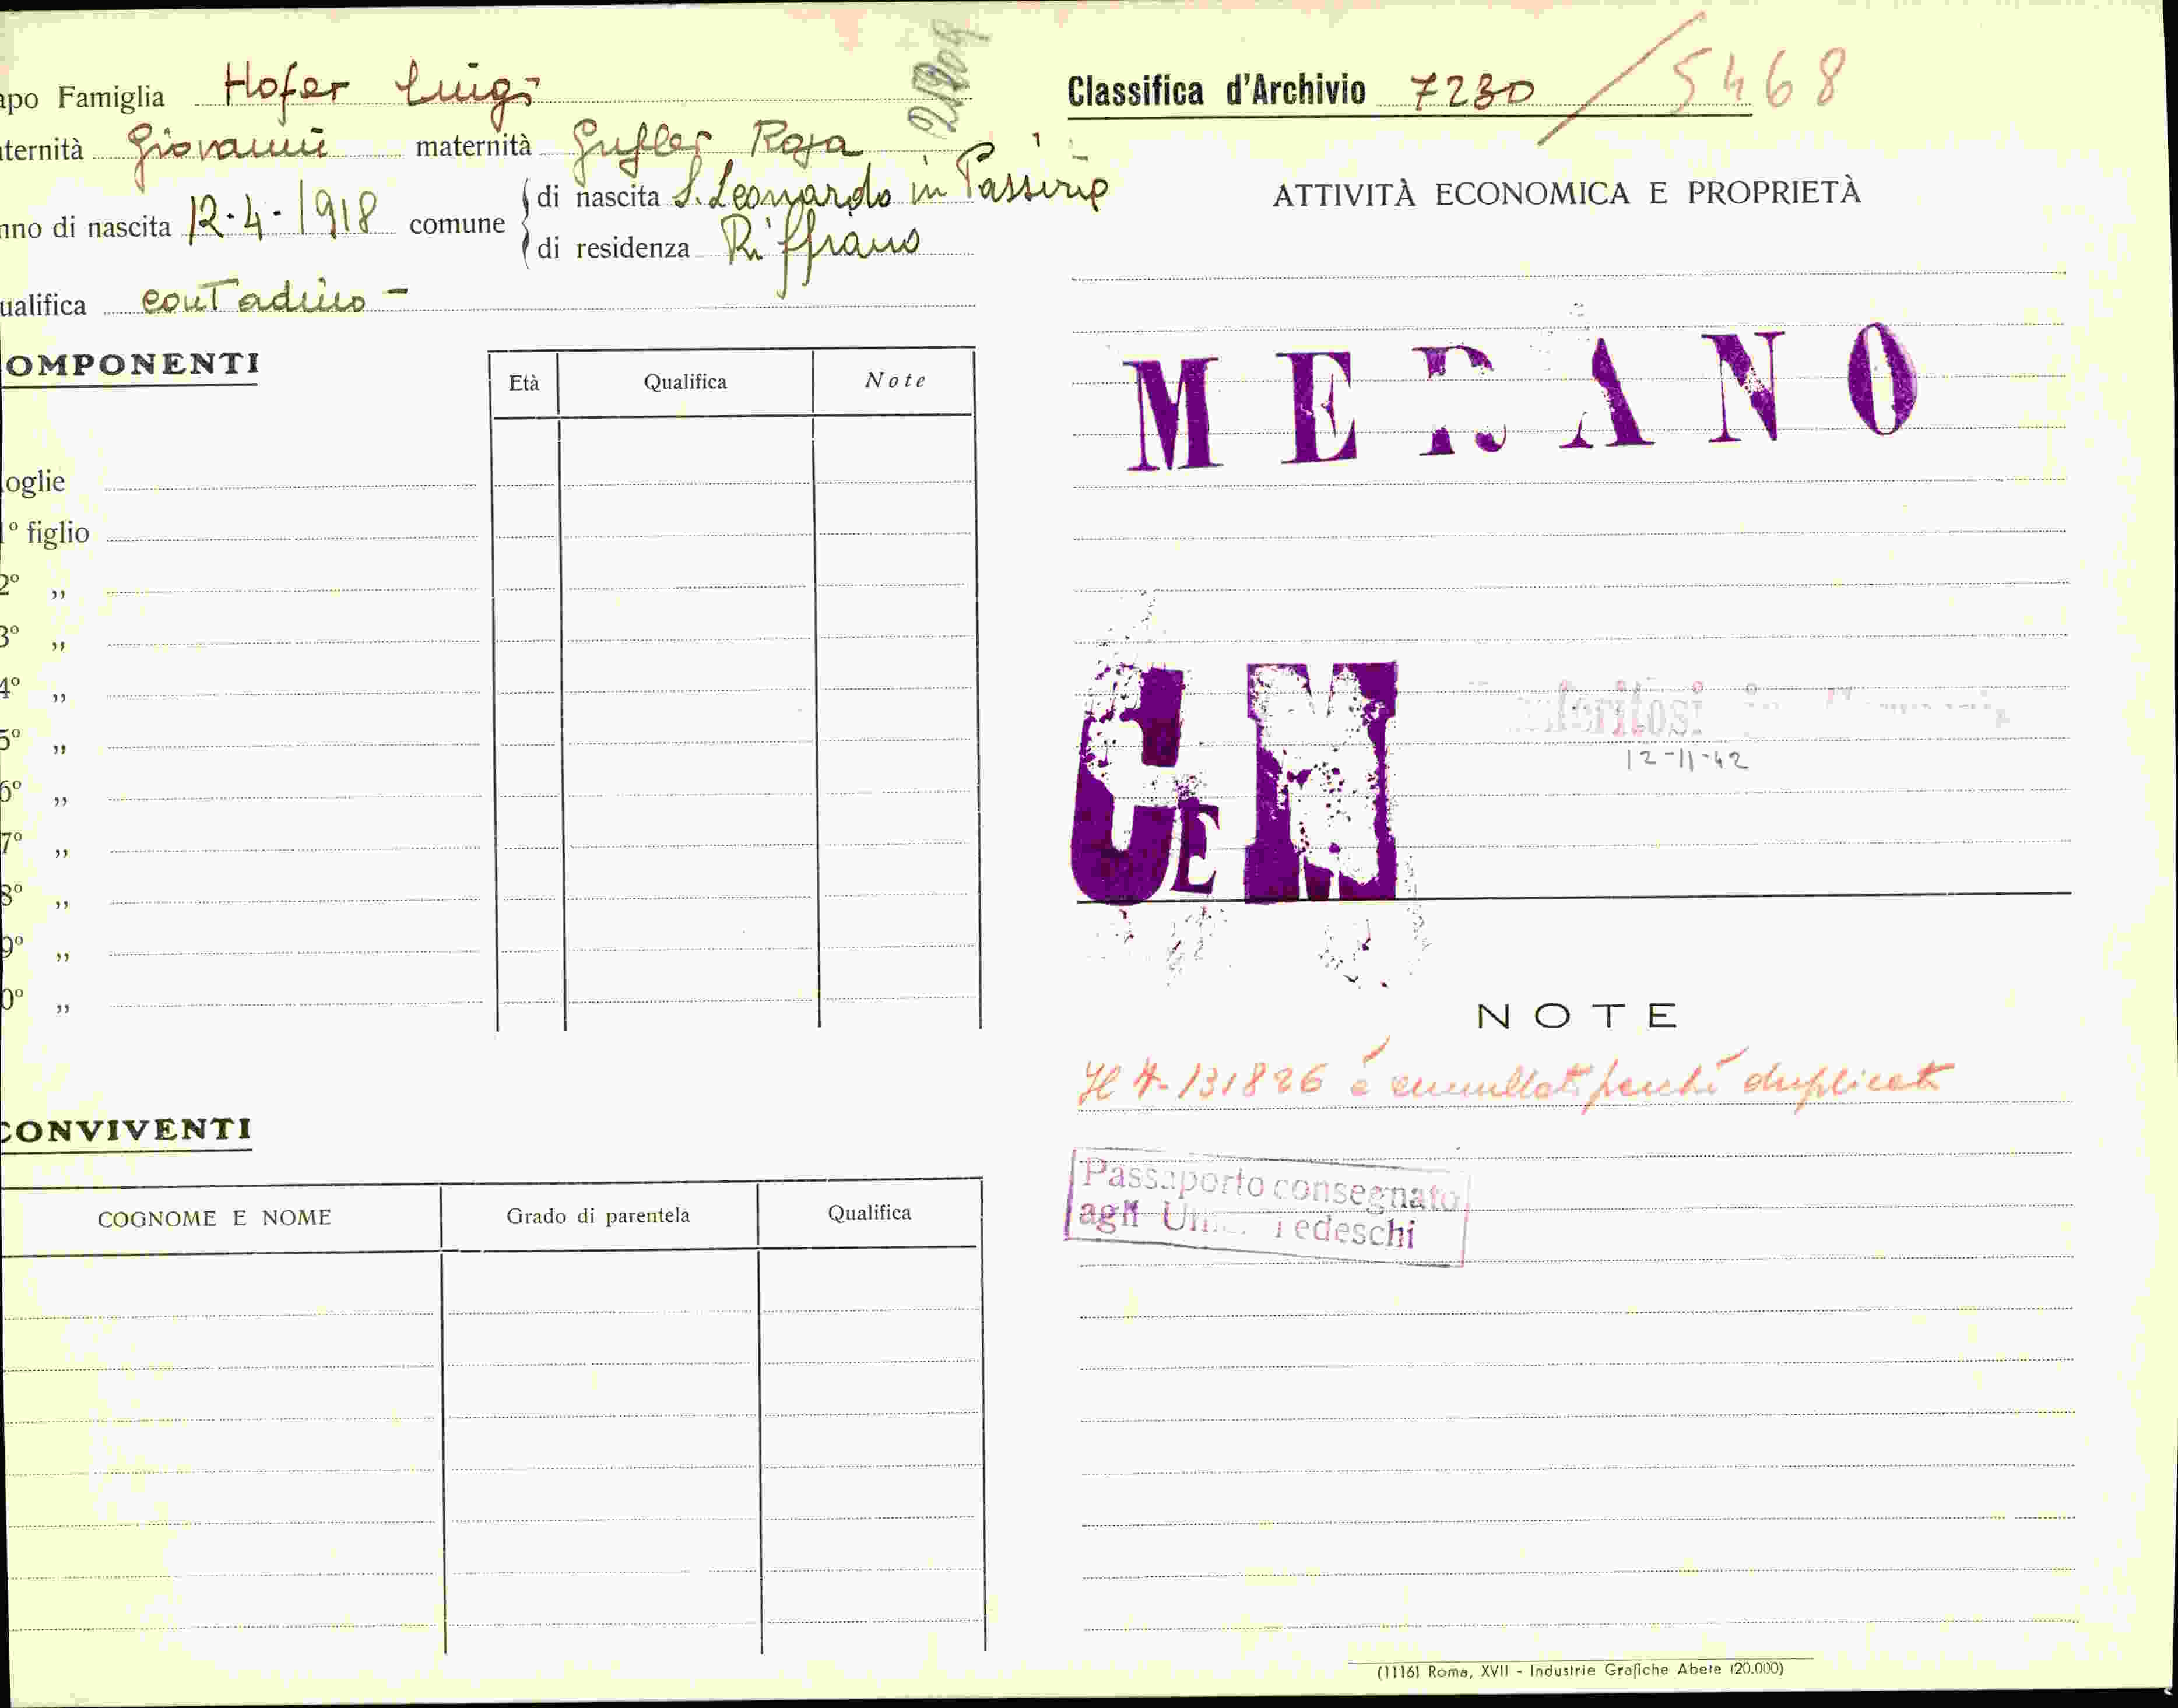 apo Famiglia Hofer Luigi
Classifica d'Archivio 7230 / 5468
ternità Giovanni maternità Gufler Rosa
nno di nascita 12-4-1918 comune di nascita S. Leonardo in Passiria
di residenza Riffiano
ualifica contadino -
ATTIVITÀ ECONOMICA E PROPRIETÀ
MERANO
OMPONENTI
Età Qualifica Note
oglie
1º figlio
2º ,,
3º ,,
4º ,,
5º ,,
6º ,,
7º ,,
8º ,,
9º ,,
0º ,,
GEM
12-11-42
NOTE
Il A-131826 è annullato perché duplicato
Passaporto consegnato
agli Tedeschi
CONVIVENTI
COGNOME E NOME Grado di parentela Qualifica
(1116) Roma, XVII - Industrie Grafiche Abete (20.000)